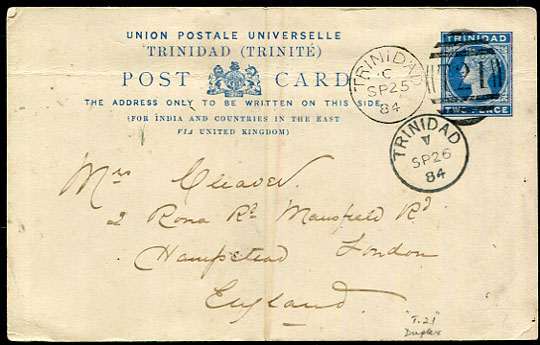 UNION POSTALE UNIVERSELLE
TRINIDAD (TRINITÉ)
POST CARD
THE ADDRESS ONLY TO BE WRITTEN ON THIS SIDE
(FOR INDIA AND COUNTRIES IN THE EAST
VIA UNITED KINGDOM)
TRINIDAD
C
SP25
84
TRINIDAD
T 21
TWO PENCE
TRINIDAD
A
SP26
84
Mrs Cleaver.
2 Rona Rd. Mansfield Rd
Hampstead London
England.
"T.21"
Duplex